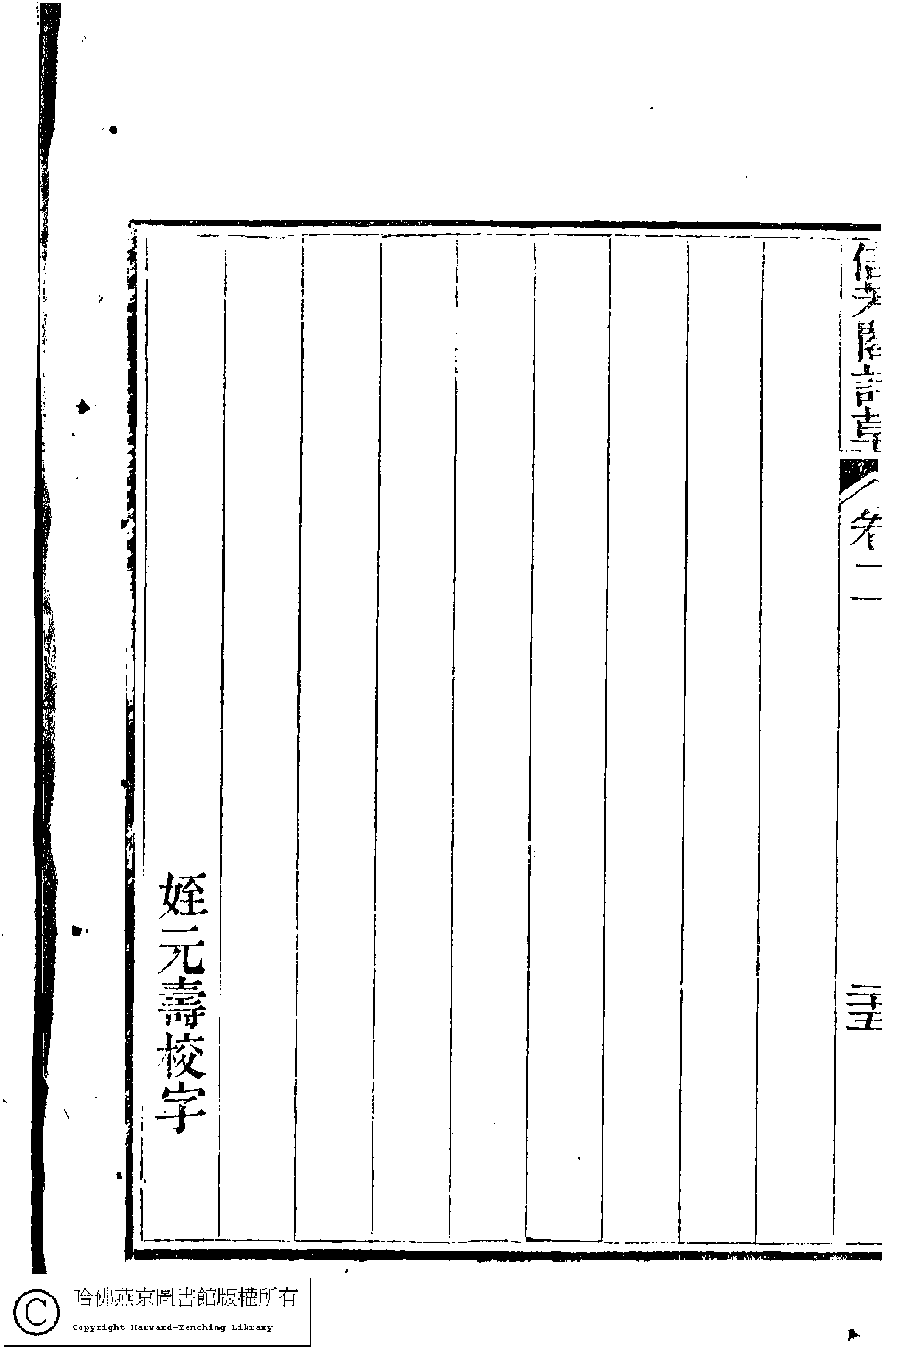 詩草
卷二
二十五
姪元壽校字
哈佛燕京圖書館版權所有
Copyright Harvard-Yenching Library